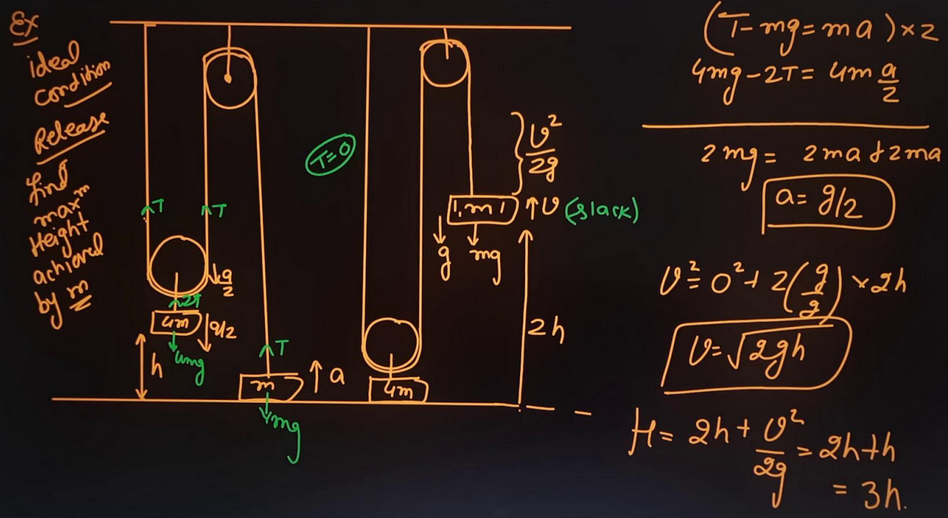 Ex
ideal
condition
Release
find
maxᵐ
Height
achieved
by m
T
T
g/2
2T
4m
g/2
4mg
h
T
m
a
mg
T=0
4m
v²/2g
m
v (slack)
g
mg
2h
(T-mg=ma)×2
4mg-2T=4m a/2
2mg = 2ma+2ma
a=g/2
v²=0²+2(g/2)×2h
v=√2gh
H= 2h+ v²/2g = 2h+h
= 3h.